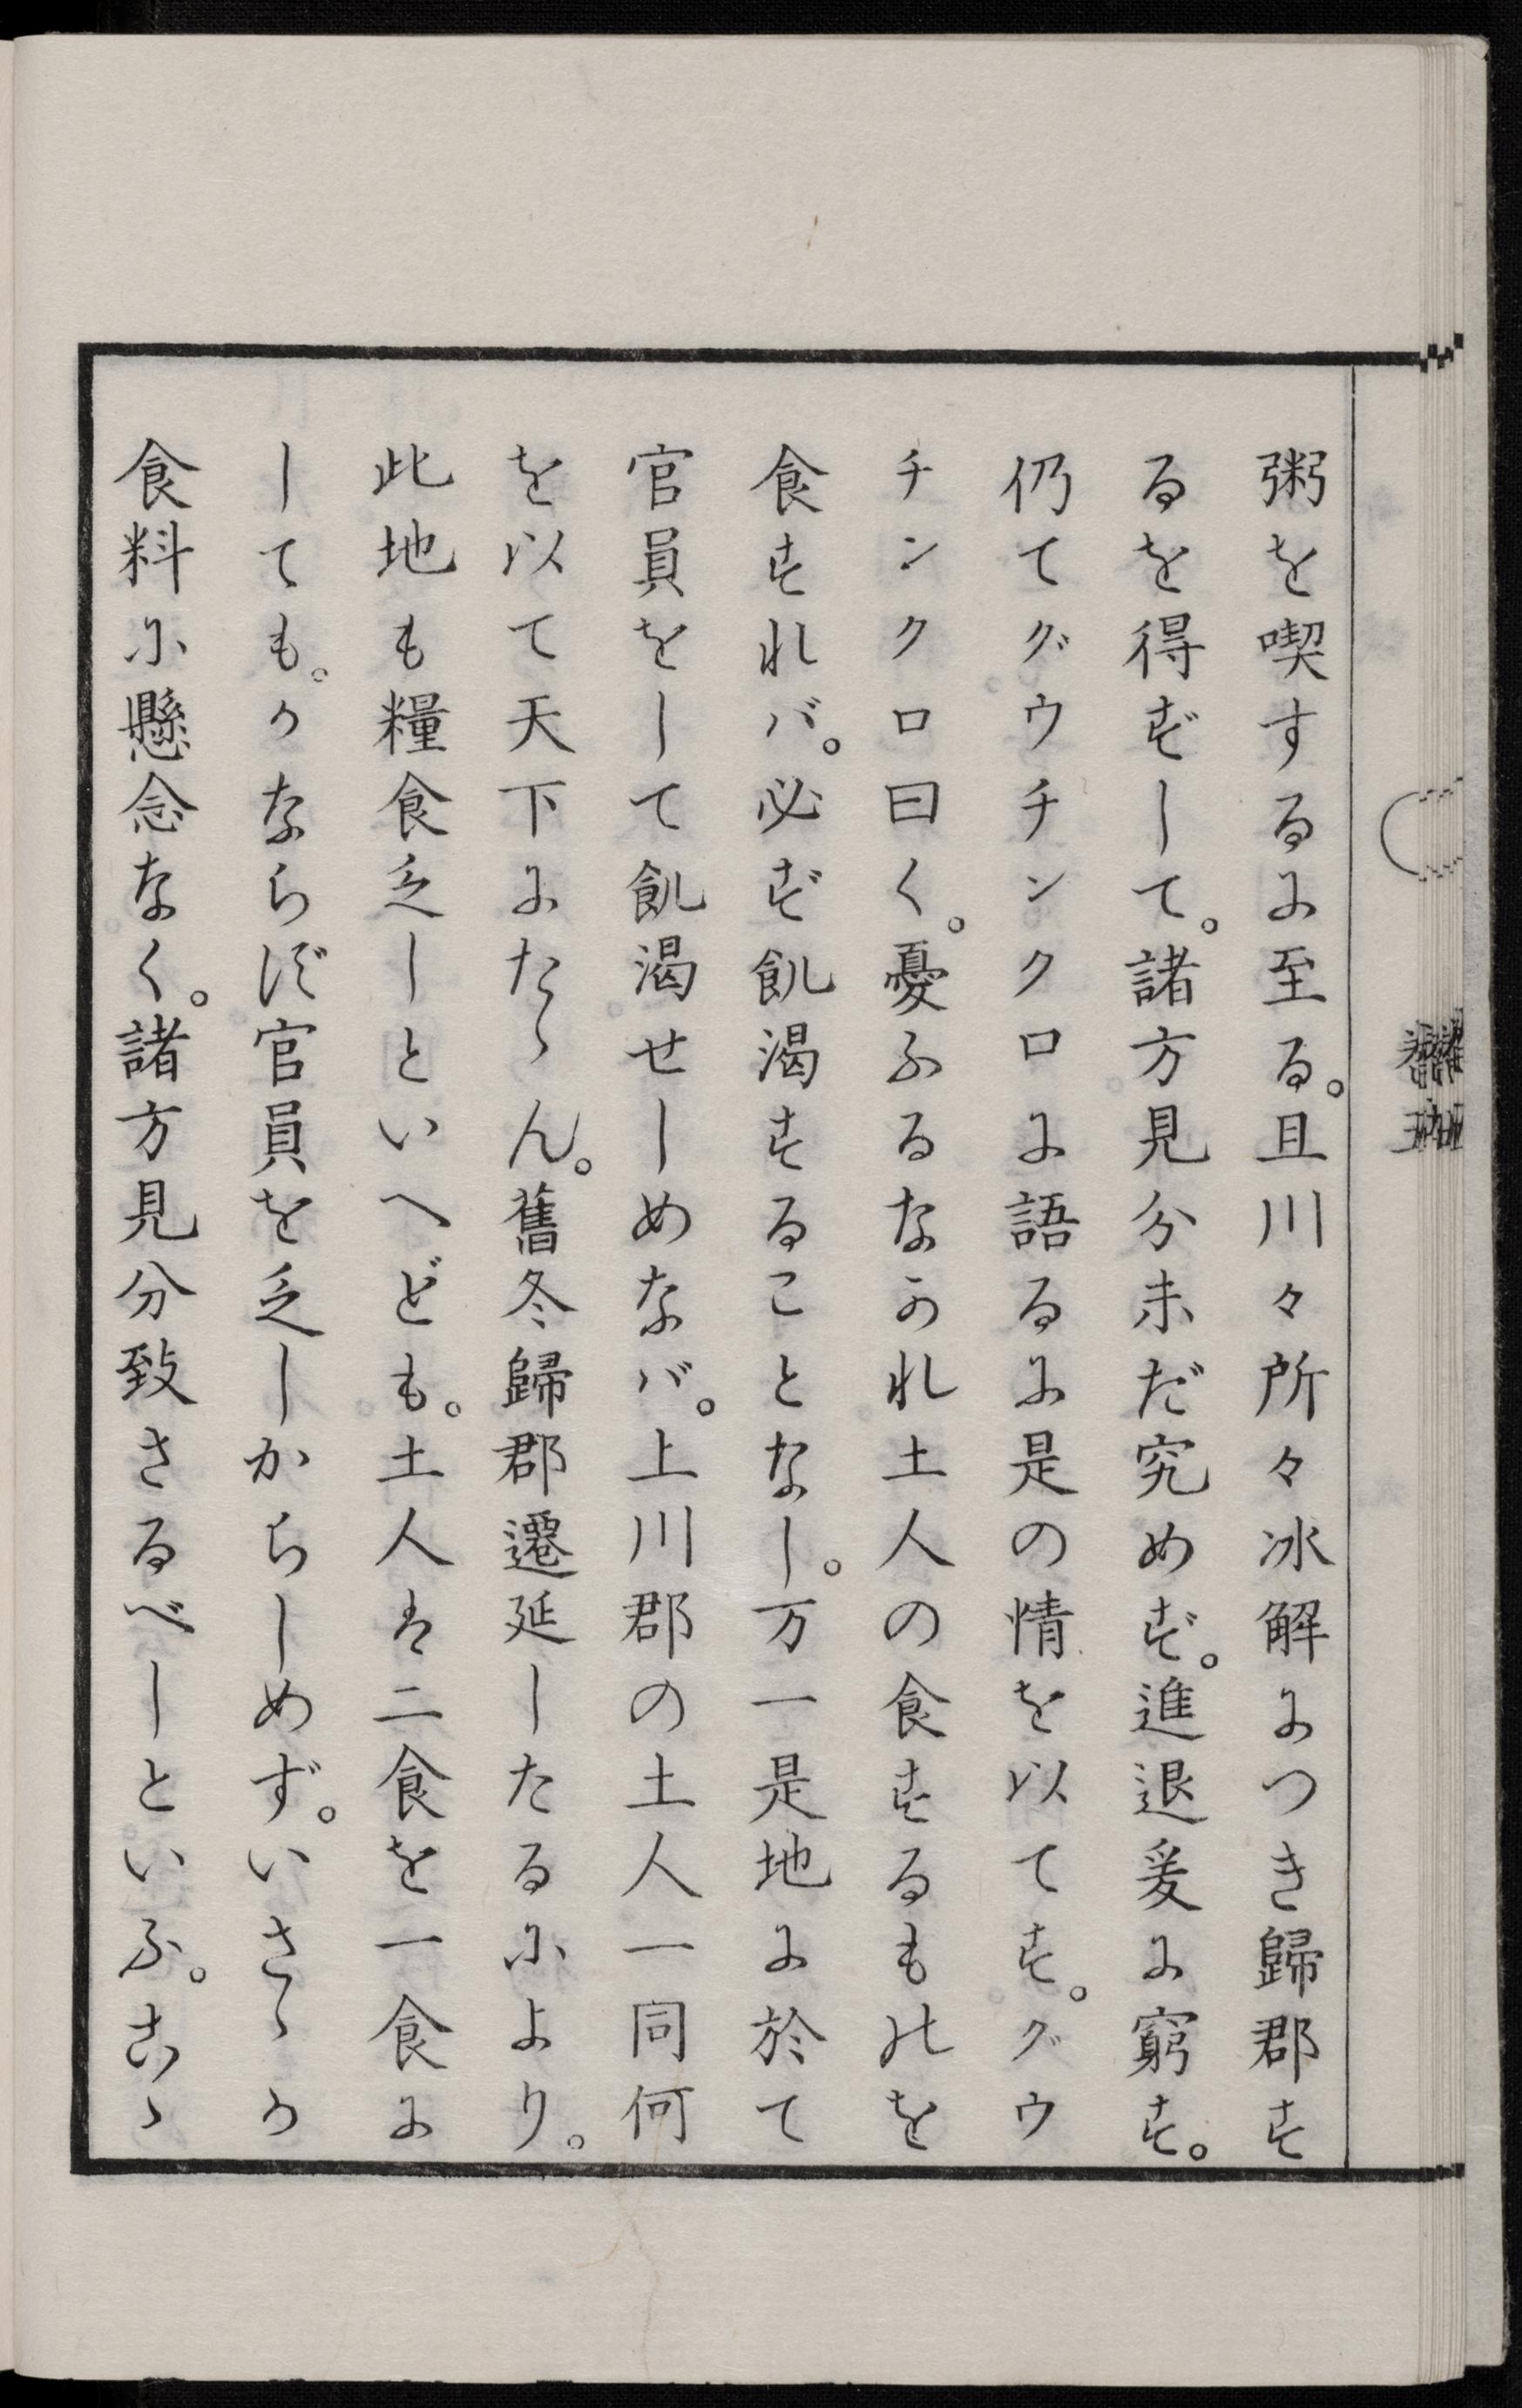 粥を喫するに至る。且川々所々冰解につき歸郡す
るを得ずして。諸方見分未だ究めず。進退爰に窮す。
仍てグウチンクロに語るに是の情を以てす。グウ
チンクロ曰く。憂ふるなかれ土人の食するものを
食すれバ。必ず飢渇することなし。万一是地に於て
官員をして飢渇せしめなバ。上川郡の土人一同何
を以て天下にたゝん。舊冬歸郡遷延したるにより。
此地も糧食乏しといへども。土人は二食を一食に
しても。かならず官員を乏しからしめず。いさゝか
食料に懸念なく。諸方見分致さるべしといふ。こゝ